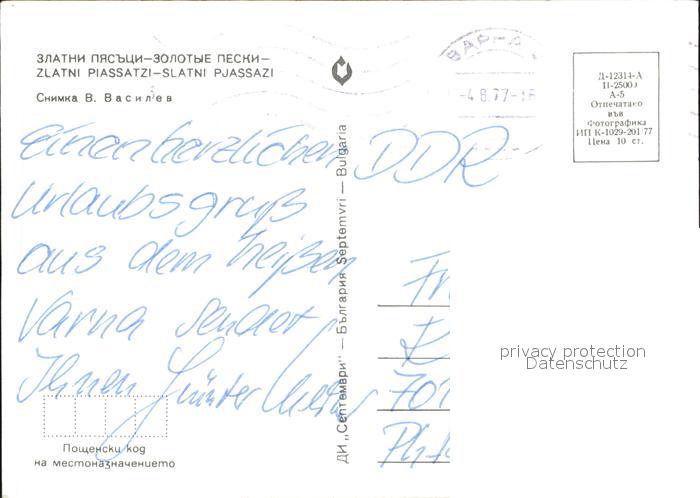 ЗЛАТНИ ПЯСЪЦИ—ЗОЛОТЫЕ ПЕСКИ—
ZLATNI PIASSATZI—SLATNI PJASSAZI
Снимка В. Василев
ВАРНА
-4.8.77-
Д-12314-А
А-5
Отпечатано
във
Фотографика
ИП К-1029-201 77
Цена 10 ст.
Einen herzlichen
Urlaubsgruß
aus dem heißen
Varna sendet
Ihnen Günter
Пощенски код
на местоназначението
ДИ „Септември" — България Septemvri — Bulgaria
DDR
Fr
701
privacy protection
Datenschutz